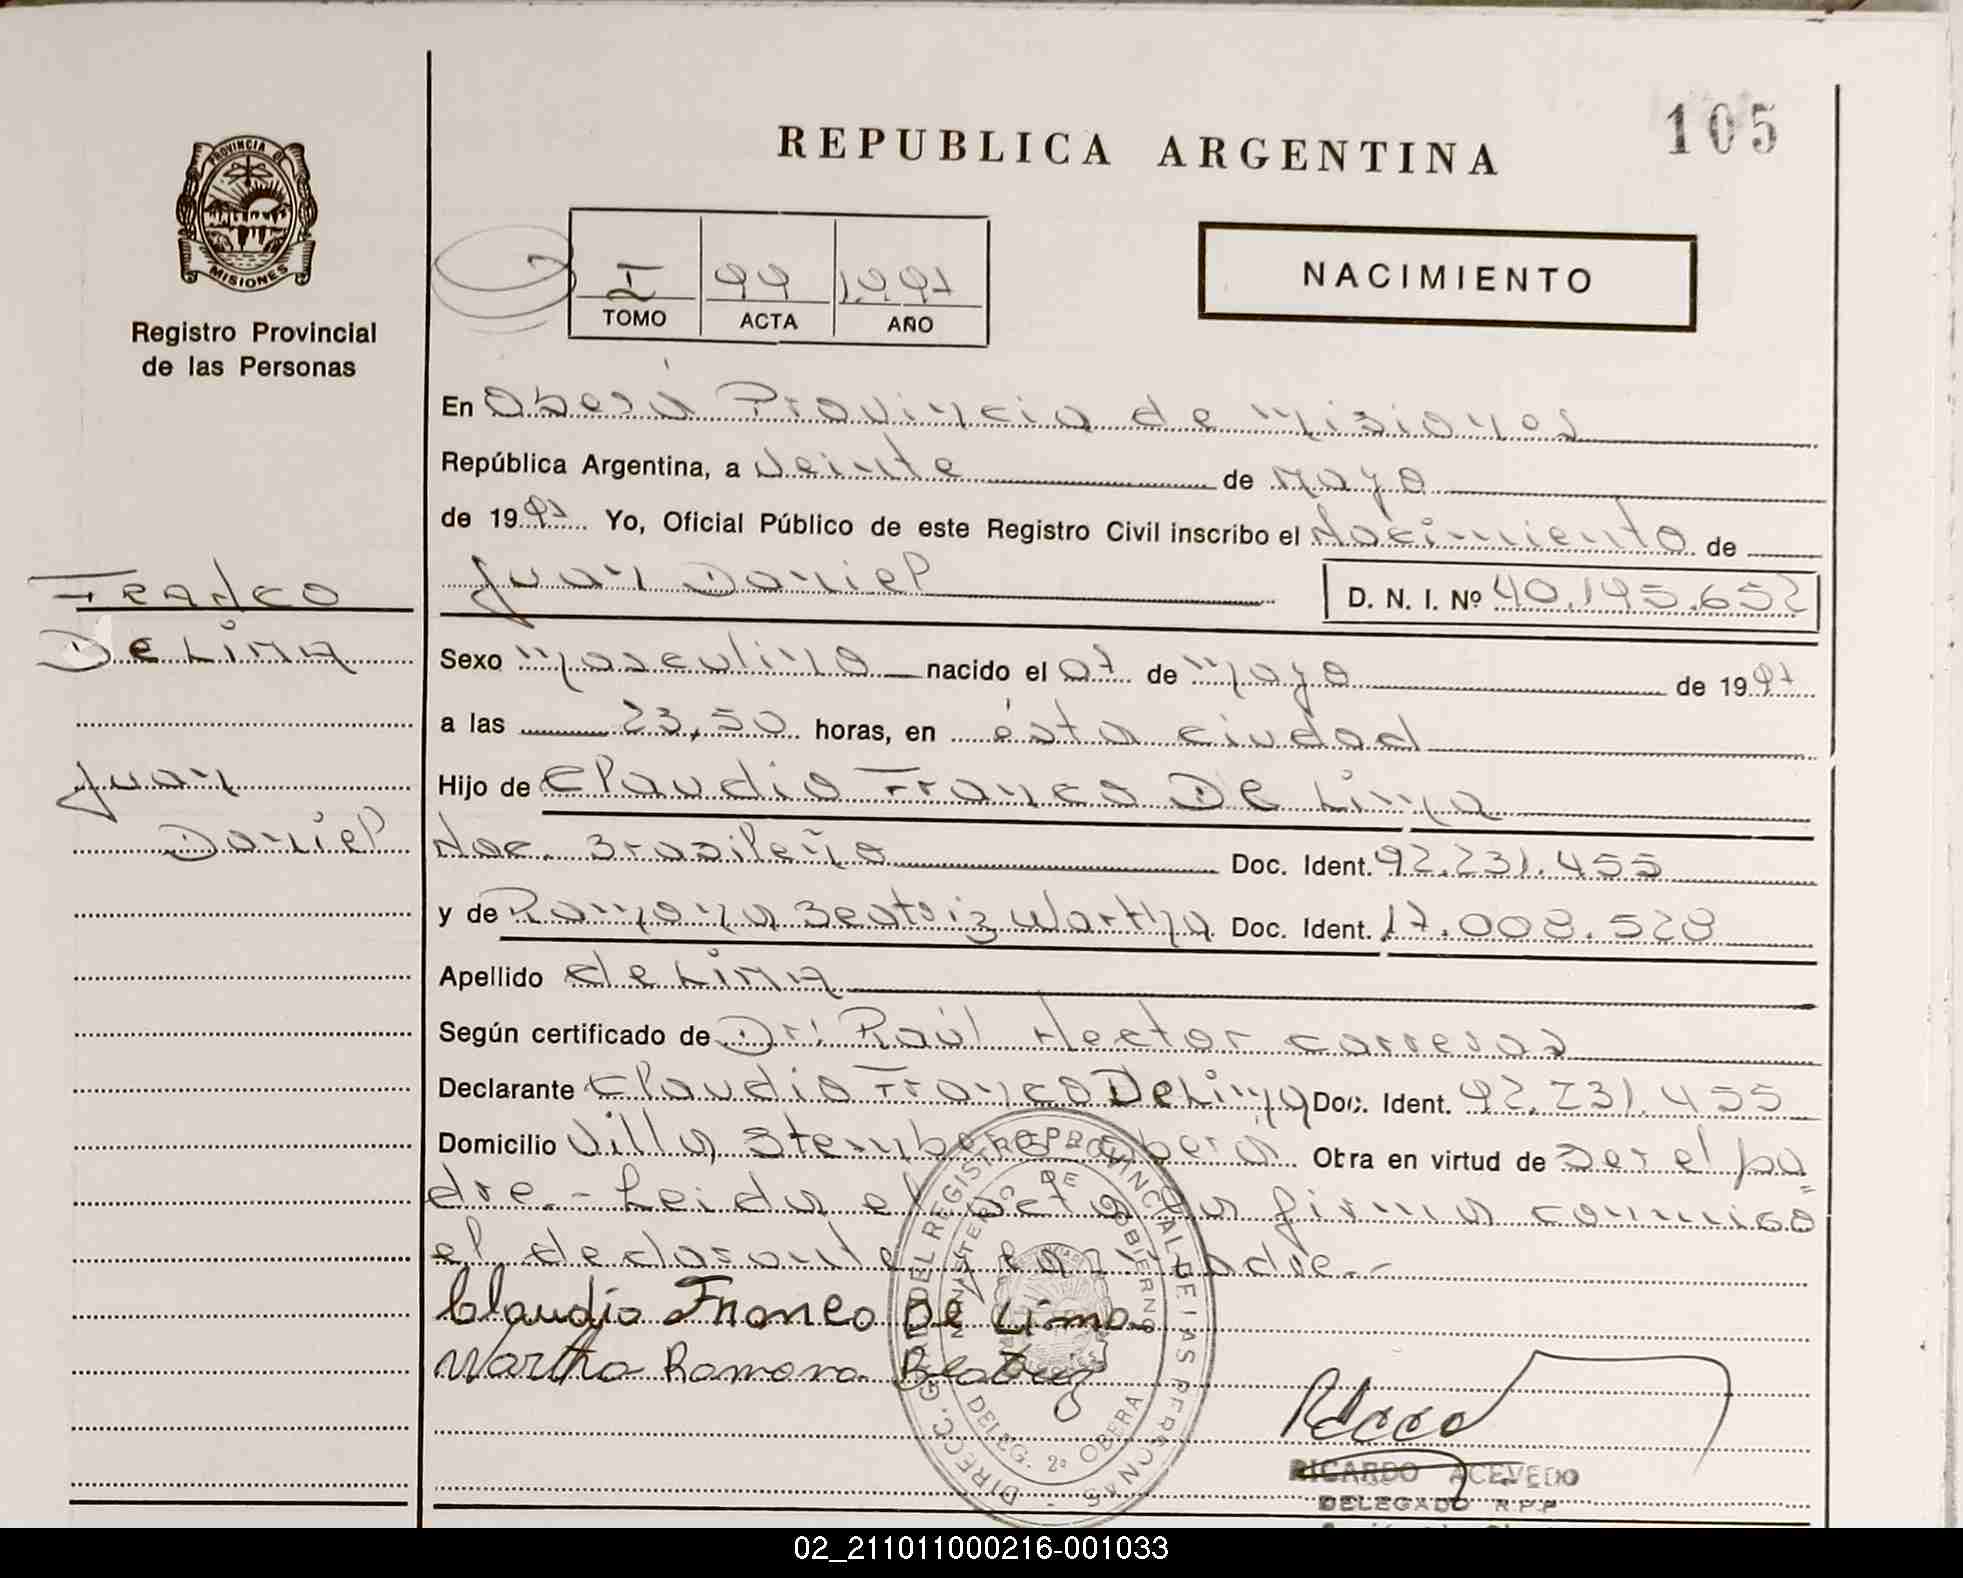 105
REPUBLICA ARGENTINA
PROVINCIA DE
MISIONES
Registro Provincial
de las Personas
I 99 1.997
TOMO ACTA AÑO
NACIMIENTO
En Oberá Provincia de Misiones
República Argentina, a veinte de mayo
de 1997 Yo, Oficial Público de este Registro Civil inscribo el nacimiento de
Juan Daniel D. N. I. Nº 40.195.652
FRANCO
DE LIMA
Juan
Daniel
Sexo masculino nacido el 07 de mayo de 1997
a las 23,50 horas, en ésta ciudad
Hijo de Claudio Franco De Lima
nac. Brasileña Doc. Ident. 92.231.455
y de Ramona Beatriz Wartha Doc. Ident. 17.008.528
Apellido de LIMA
Según certificado de Dr: Raúl Hector Carreras
Declarante Claudio Franco De Lima Doc. Ident. 92.231.455
Domicilio Villa Stemberg Oberá Obra en virtud de ser el pa
dre.- Leida el acta la firma conmigo
el declarante y la madre.-
Claudio Franco De Lima
Wartha Ramona Beatriz
DIRECC. GRAL. DEL REGISTRO PROVINCIAL DE LAS PERSONAS
MINISTERIO DE GOBIERNO
DELEG. 2º OBERA
RICARDO ACEVEDO
DELEGADO R.P.P
02_211011000216-001033